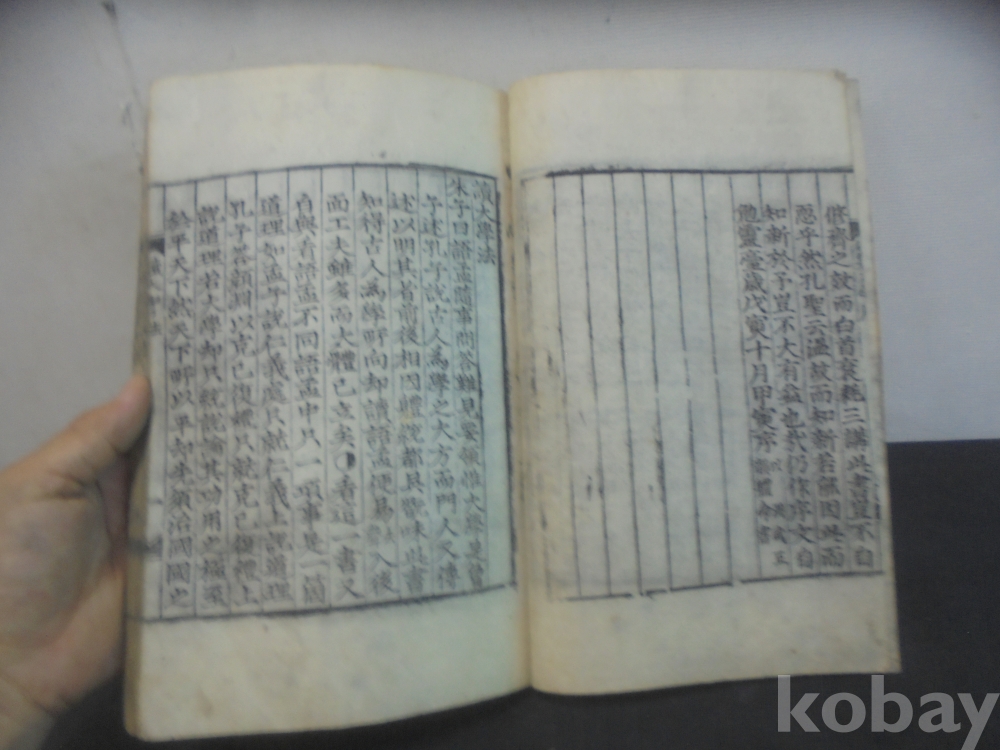 修齊之效而白首衰耗三講此書豈不自
恧乎然孔聖云溫故而知新若無因此而
知新於予豈不大有益也哉仍作序文自
勉靈臺歲戊寅十月甲寅序
讀大學法
朱子曰語孟隨事問答難見要領惟大學是曾
子述孔子說古人爲學之大方而門人又傳
述以明其旨前後相因體統都具翫味此書
知得古人爲學所向却讀語孟便易入後
面工夫雖多而大體已立矣看這一書又
自與看語孟不同語孟中只一項事是一箇
道理如孟子說仁義處只就仁義上說道理
孔子答顔淵以克己復禮只就克己復禮上
說道理若大學却只統說論其功用之極至
於平天下然天下所以平却先須治國國之
kobay